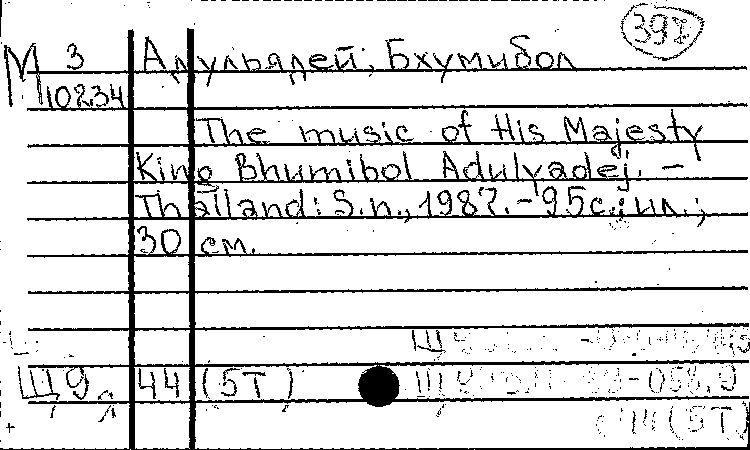 397
М 3 Адульядей, Бхумибол
10234
The music of His Majesty
King Bhumibol Adulyadej. –
Thailand: S.n., 1987. – 95с.: ил.;
30 см.
Щ9 44 (5Т)
44(5Т)